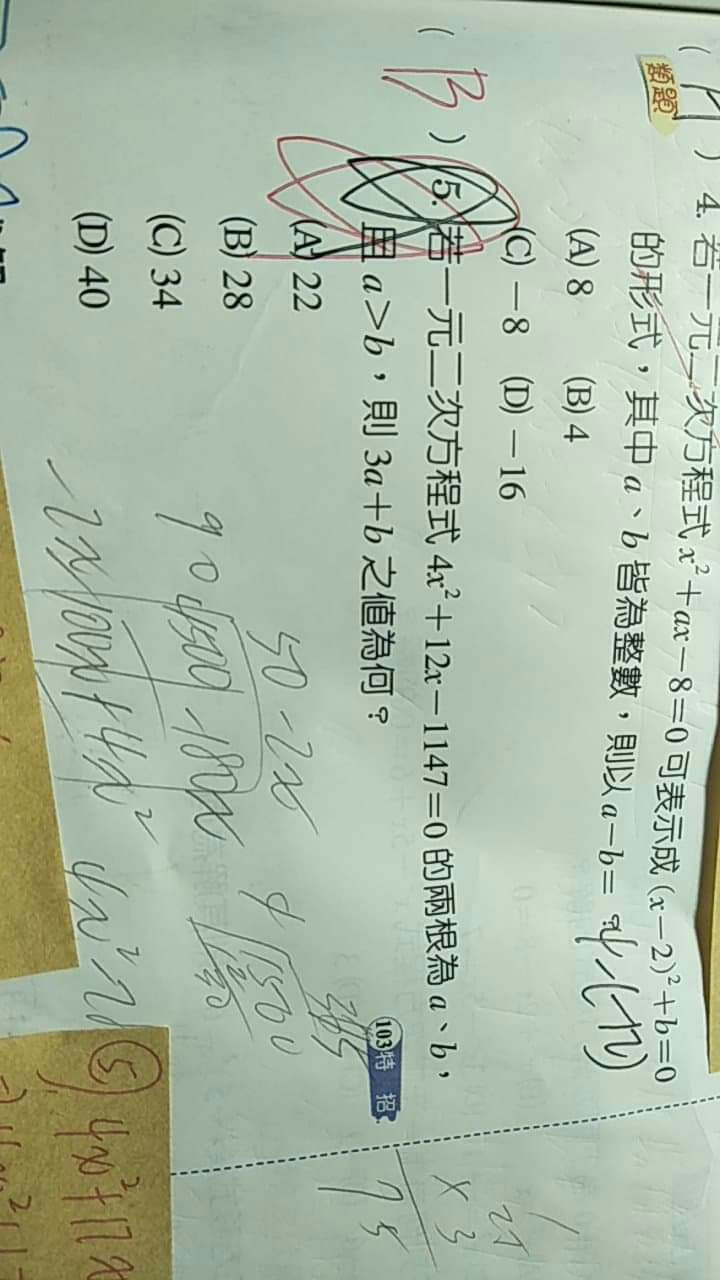 類題
4. 若一元二次方程式 x²+ax－8=0 可表示成 (x－2)²+b=0
的形式，其中 a、b 皆為整數，則以 a－b=？
(A) 8 (B) 4
(C)－8 (D)－16
( B ) 5. 若一元二次方程式 4x²＋12x－1147＝0 的兩根為 a、b，
且 a＞b，則 3a＋b 之值為何？
103特招
(A) 22
(B) 28
(C) 34
(D) 40
50-2x
90 4500 -180x
-2x
+4x²
25
× 3
75
⑤ 4x²+12x